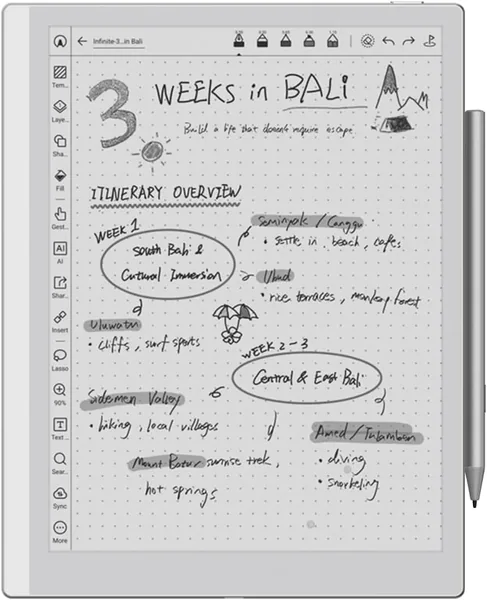 Infinite-3...in Bali
Tem...
Laye...
Sha...
Fill
Gest...
AI
AI
Shar...
Insert
Lasso
90%
Text ...
Sear...
Sync
More
3 WEEKS in BALi
Build a life that doesn't require escape
ITINERARY OVERVIEW
WEEK 1
South Bali &
Cutural Immersion
Seminyak / Canggu
• settle in, beach, cafes
Ubud
• rice terraces, monkey forest
Uluwatu
• cliffs, surf spots
WEEK 2-3
Central & East Bali
Sidemen Valley
• hiking, local villages
Mount Batur sunrise trek,
hot springs
Amed / Tulamben
• diving
• snorkeling